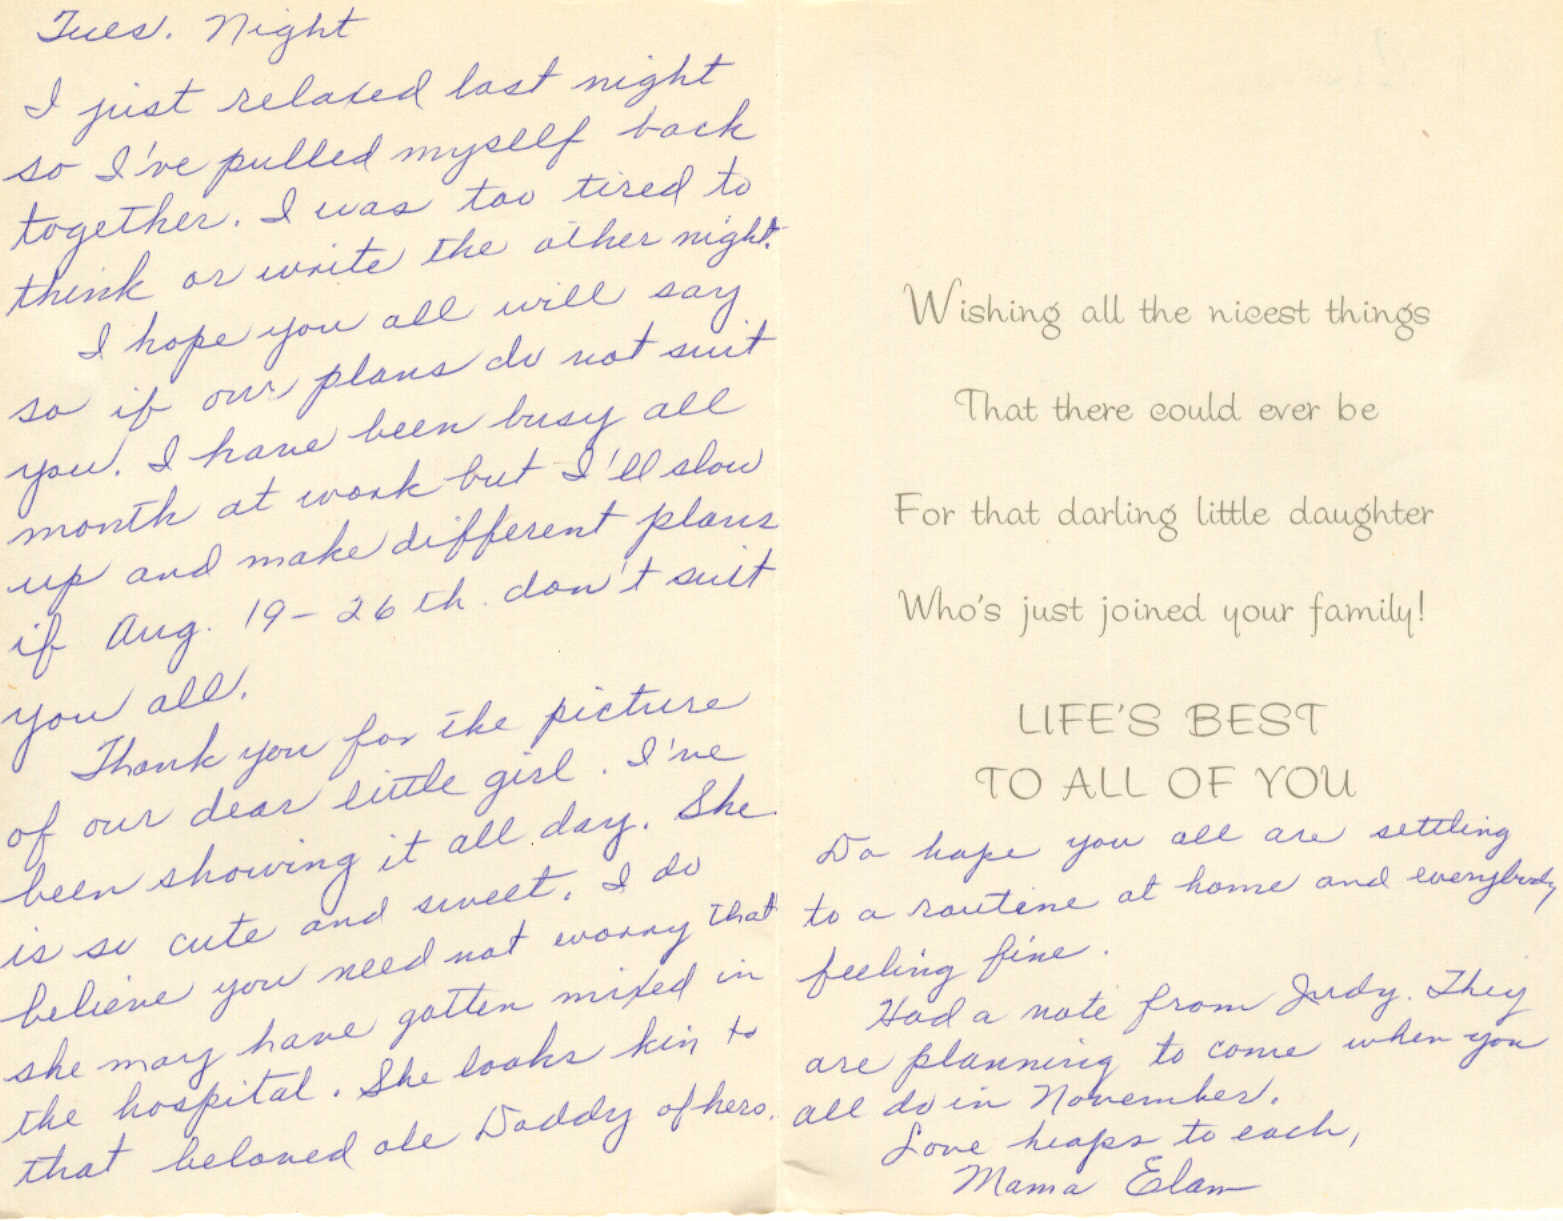 Tues. Night
I just relaxed last night
so I've pulled myself back
together. I was too tired to
think or write the other night.
I hope you all will say
so if our plans do not suit
you. I have been busy all
month at work but I'll slow
up and make different plans
if Aug. 19-26th. don't suit
you all.
Thank you for the picture
of our dear little girl. I've
been showing it all day. She
is so cute and sweet. I do
believe you need not worry that
she may have gotten mixed in
the hospital. She looks kin to
that beloved ole Daddy of hers.
Wishing all the nicest things
That there could ever be
For that darling little daughter
Who's just joined your family!
LIFE'S BEST
TO ALL OF YOU
Do hope you all are settling
to a routine at home and everybody
feeling fine.
Had a note from Judy. They
are planning to come when you
all do in November.
Love heaps to each,
Mama Elam